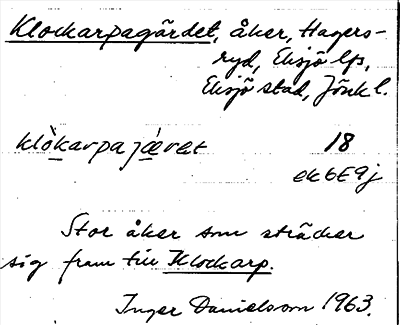 Klockarpagärdet, åker, Hagers-
ryd, Eksjö lfs,
Eksjö stad, Jönk l.
klòkarpajæret 18
ek 6E9j
Stor åker som sträcker
sig fram till Klockarp.
Inger Danielsson 1963.